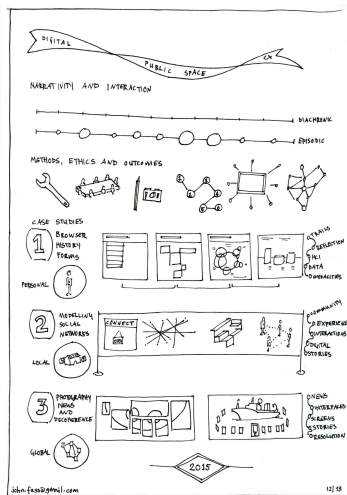 DIGITAL PUBLIC SPACE
NARRATIVITY AND INTERACTION
DIACHRONIC
EPISODIC
METHODS, ETHICS AND OUTCOMES
CASE STUDIES
1
BROWSER
HISTORY
FORMS
PERSONAL
TRAILS
REFLECTION
HCI
DATA
2
MODELLING
SOCIAL
NETWORKS
CONNECT
LOCAL
COMMUNITY
EXPERIENCE
INTERACTIONS
DIGITAL
STORIES
3
PHOTOGRAPHY
NEWS
AND
GLOBAL
NEWS
INTERFACES
SCREENS
STORIES
RESOLUTION
2015
john.fass@gmail.com